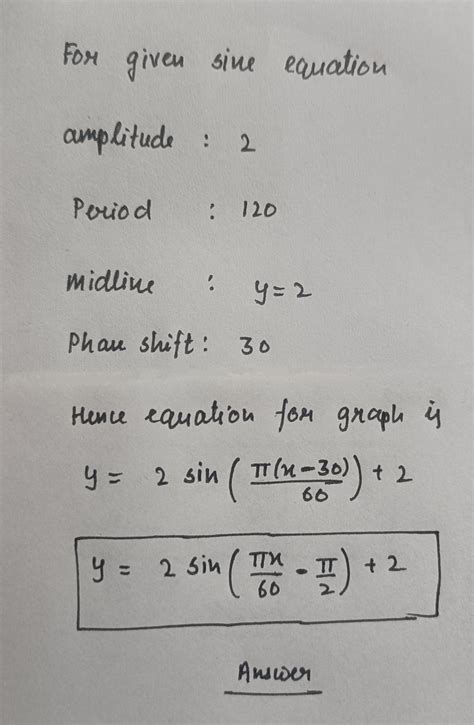 For given sine equation
amplitude : 2
Period : 120
midline : y=2
Phase shift : 30
Hence equation for graph is
y = 2 sin ( π(x-30) / 60 ) + 2
y = 2 sin ( πx / 60 - π / 2 ) + 2
Answer